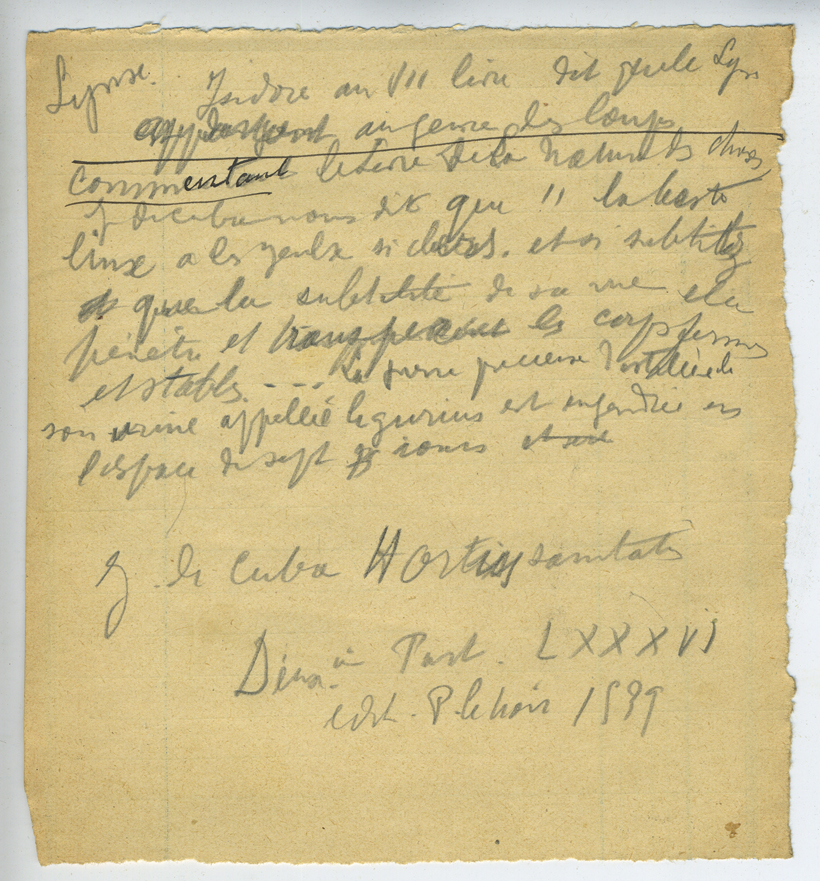 Lynx. Isidore au VII livre dit que le Lynx
appartient au genre des loups
commentant le livre de la Nature des choses,
J de cuba nous dit que " la beste
linx a les yeulx si clers. et si subtilz
et que la subtilité de sa vue elle
pénètre et transperce les corps fermes
et stables. --- La pierre precieuse
son urine appellée ligurius est engendrée en
l'espace de sept jours
J. de Cuba Hortus sanitatis
Deux. Part. LXXXVI
edit. P. le noir 1539